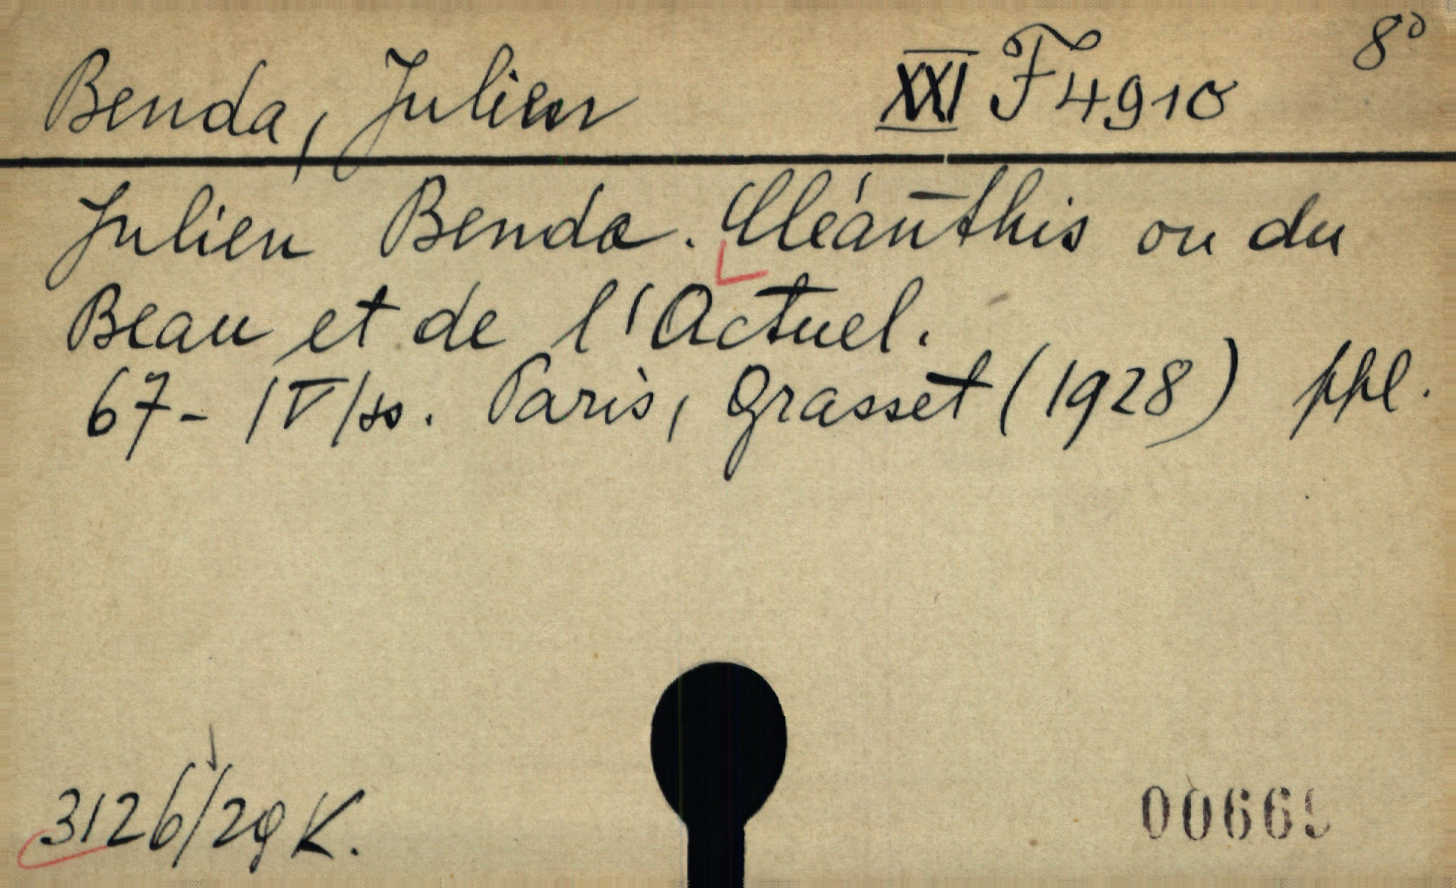 Benda, Julien XXI F 4910 8°
Julien Benda. Cléanthis ou du
Beau et de l'Actuel.
67 - IV/ss. Paris, Grasset (1928) ppl.
3126/29 K.
00669